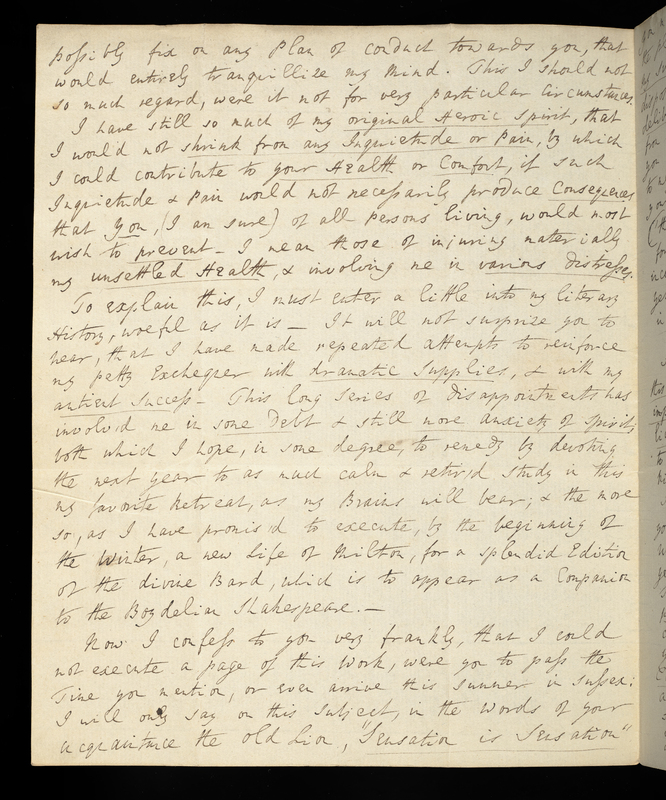 possibly fix on any Plan of conduct towards you, that
would entirely tranquillize my Mind. This I should not
so much regard, were it not for very particular Circumstances.
I have still so much of my original Heroic Spirit, that
I would not shrink from any Inquietude or Pain, by which
I could contribute to your Health or Comfort, if such
Inquietude & Pain would not necessarily produce Consequences
that You, (I am sure) of all persons living, would most
wish to prevent — I mean those of injuring materially
my unsettled Health, & involving me in various distresses.
To explain this, I must enter a little into my literary
History, woeful as it is — It will not surprize you to
hear, that I have made repeated attempts to reinforce
my petty Exchequer with dramatic Supplies, & with my
antient Success — This long Series of disappointments has
involv'd me in some Debt & still more anxiety of spirit;
both which I hope, in some degree, to remedy by devoting
the next year to as much calm & retir'd study in this
my favorite Retreat, as my Brains will bear; & the more
so, as I have promis'd to execute, by the beginning of
the Winter, a new Life of Milton, for a splendid Edition
of the divine Bard, which is to appear as a Companion
to the Boydelian Shakespeare. —
Now I confess to you very frankly, that I could
not execute a page of this Work, were you to pass the
Time you mention, or even arrive this summer in Sussex:
I will only say on this subject, in the words of your
acquaintance the old Lion, "Sensation is Sensation"